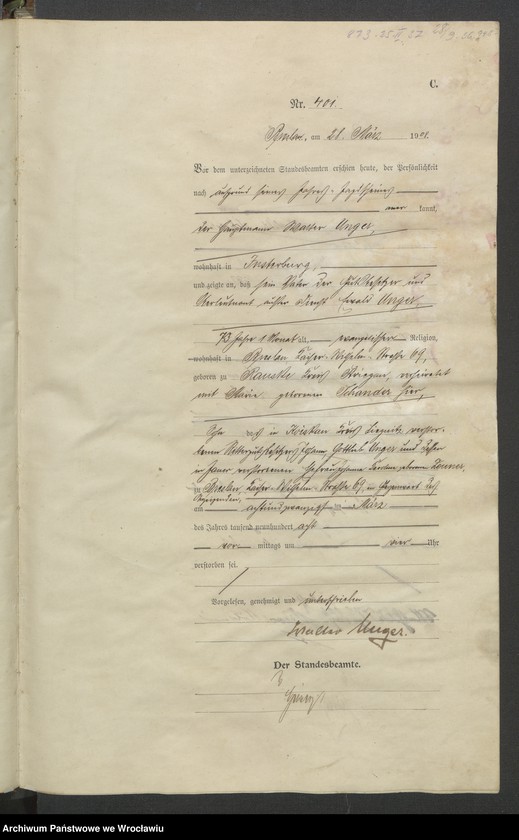 C.
Nr. 401.
Breslau, am 28. März 1908.
Vor dem unterzeichneten Standesbeamten erschien heute, der Persönlichkeit
nach auf Grund seines Jahres-Jagdscheines
aner kannt,
der Hauptmann Walter Unger,
wohnhaft in Insterburg,
und zeigte an, daß sein Vater der Gutsbesitzer und
Oberleutnant außer Dienst Ewald Unger,
73 Jahre 1 Monat alt, evangelischer Religion,
wohnhaft in Breslau Kaiser-Wilhelm-Straße 69,
geboren zu Kreis Striegau, verheiratet
mit Marie geborenen Schander hier,
Sohn des in Kreis Liegnitz verstor-
benen Rittergutsbesitzers Gottlieb Unger und dessen
in Jauer verstorbenen Ehefrau
zu Breslau, Kaiser-Wilhelm-Straße 69, in Gegenwart des
Anzeigenden,
am achtundzwanzigsten März
des Jahres tausend neunhundert acht
vor mittags um vier Uhr
verstorben sei.
Vorgelesen, genehmigt und unterschrieben
Walter Unger.
Der Standesbeamte.
Archiwum Państwowe we Wrocławiu